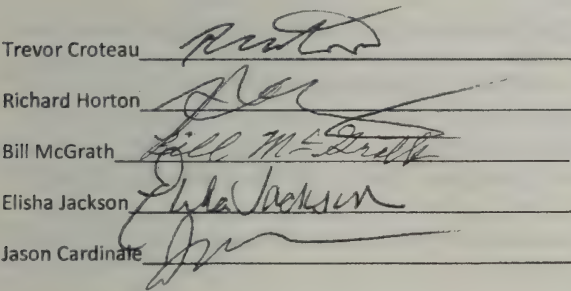 Trevor Croteau
Richard Horton
Bill McGrath Bill McGrath
Elisha Jackson Elisha Jackson
Jason Cardinale